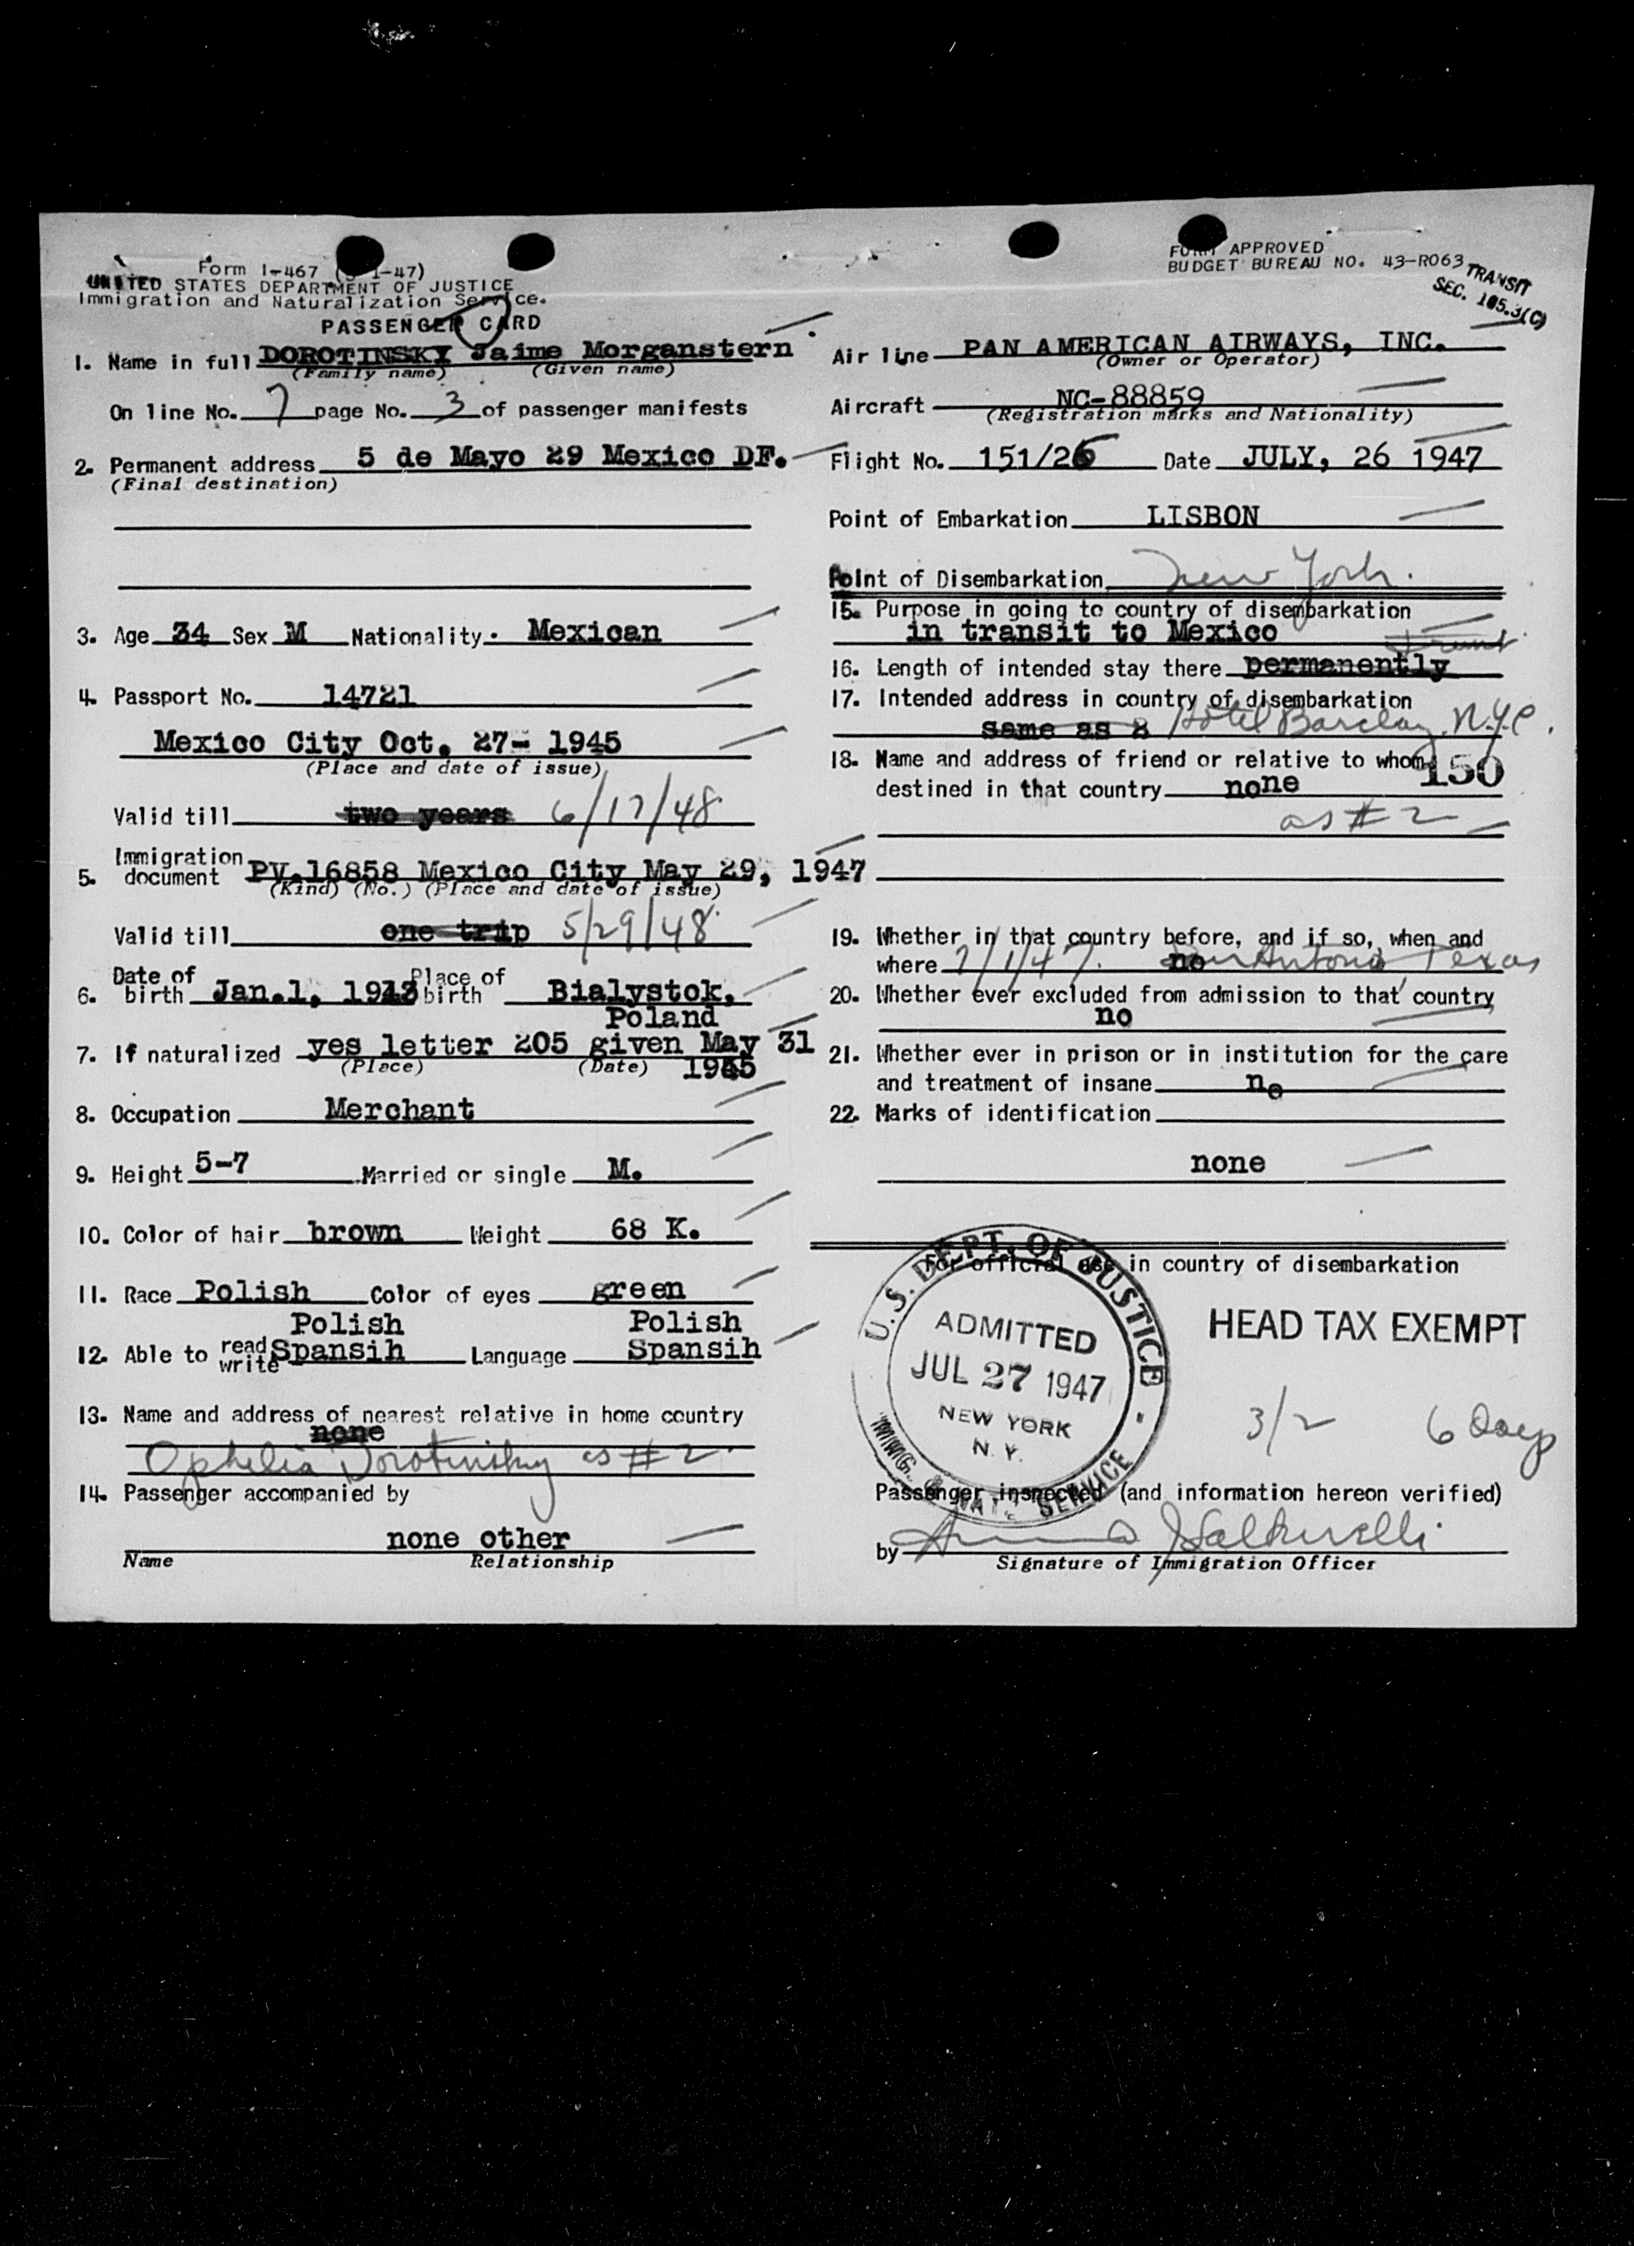 Form I-467 ( 1-47)
UNITED STATES DEPARTMENT OF JUSTICE
Immigration and Naturalization Service.
PASSENGER CARD
1. Name in full DOROTINSKY Jaime Morganstern
(Family name) (Given name)
On line No. 7 page No. 3 of passenger manifests
2. Permanent address 5 de Mayo 29 Mexico DF.
(Final destination)
3. Age 34 Sex M Nationality. Mexican
4. Passport No. 14721
Mexico City Oct. 27- 1945
(Place and date of issue)
Valid till two years 6/17/48
5. Immigration document PV.16858 Mexico City May 29, 1947
(Kind) (No.) (Place and date of issue)
Valid till one trip 5/29/48
6. Date of birth Jan.1, 1913 Place of birth Bialystok,
Poland
7. If naturalized yes letter 205 given May 31
(Place) (Date) 1945
8. Occupation Merchant
9. Height 5-7 Married or single M.
10. Color of hair brown Weight 68 K.
11. Race Polish Color of eyes green
Polish Polish
12. Able to read write Spansih Language Spansih
13. Name and address of nearest relative in home country
none
Ophelia Dorotinsky as #2
14. Passenger accompanied by
none other
Name Relationship
FORM APPROVED
BUDGET BUREAU NO. 43-R063
TRANSIT
SEC. 105.3(C)
Air line PAN AMERICAN AIRWAYS, INC.
(Owner or Operator)
Aircraft NC-88859
(Registration marks and Nationality)
Flight No. 151/26 Date JULY, 26 1947
Point of Embarkation LISBON
Point of Disembarkation New York.
15. Purpose in going to country of disembarkation
in transit to Mexico
16. Length of intended stay there permanently
17. Intended address in country of disembarkation
same as 2 Hotel Barclay, N.Y.C.
18. Name and address of friend or relative to whom
150
destined in that country none
as #2
19. Whether in that country before, and if so, when and
where 7/1/47. no San Antonio Texas
20. Whether ever excluded from admission to that country
no
21. Whether ever in prison or in institution for the care
and treatment of insane no
22. Marks of identification
none
For official use in country of disembarkation
U.S. DEPT. OF JUSTICE
ADMITTED
JUL 27 1947
NEW YORK
N. Y.
IMMIG. & NAT. SERVICE
HEAD TAX EXEMPT
3/2 6 days
Passenger inspected (and information hereon verified)
by
Signature of Immigration Officer